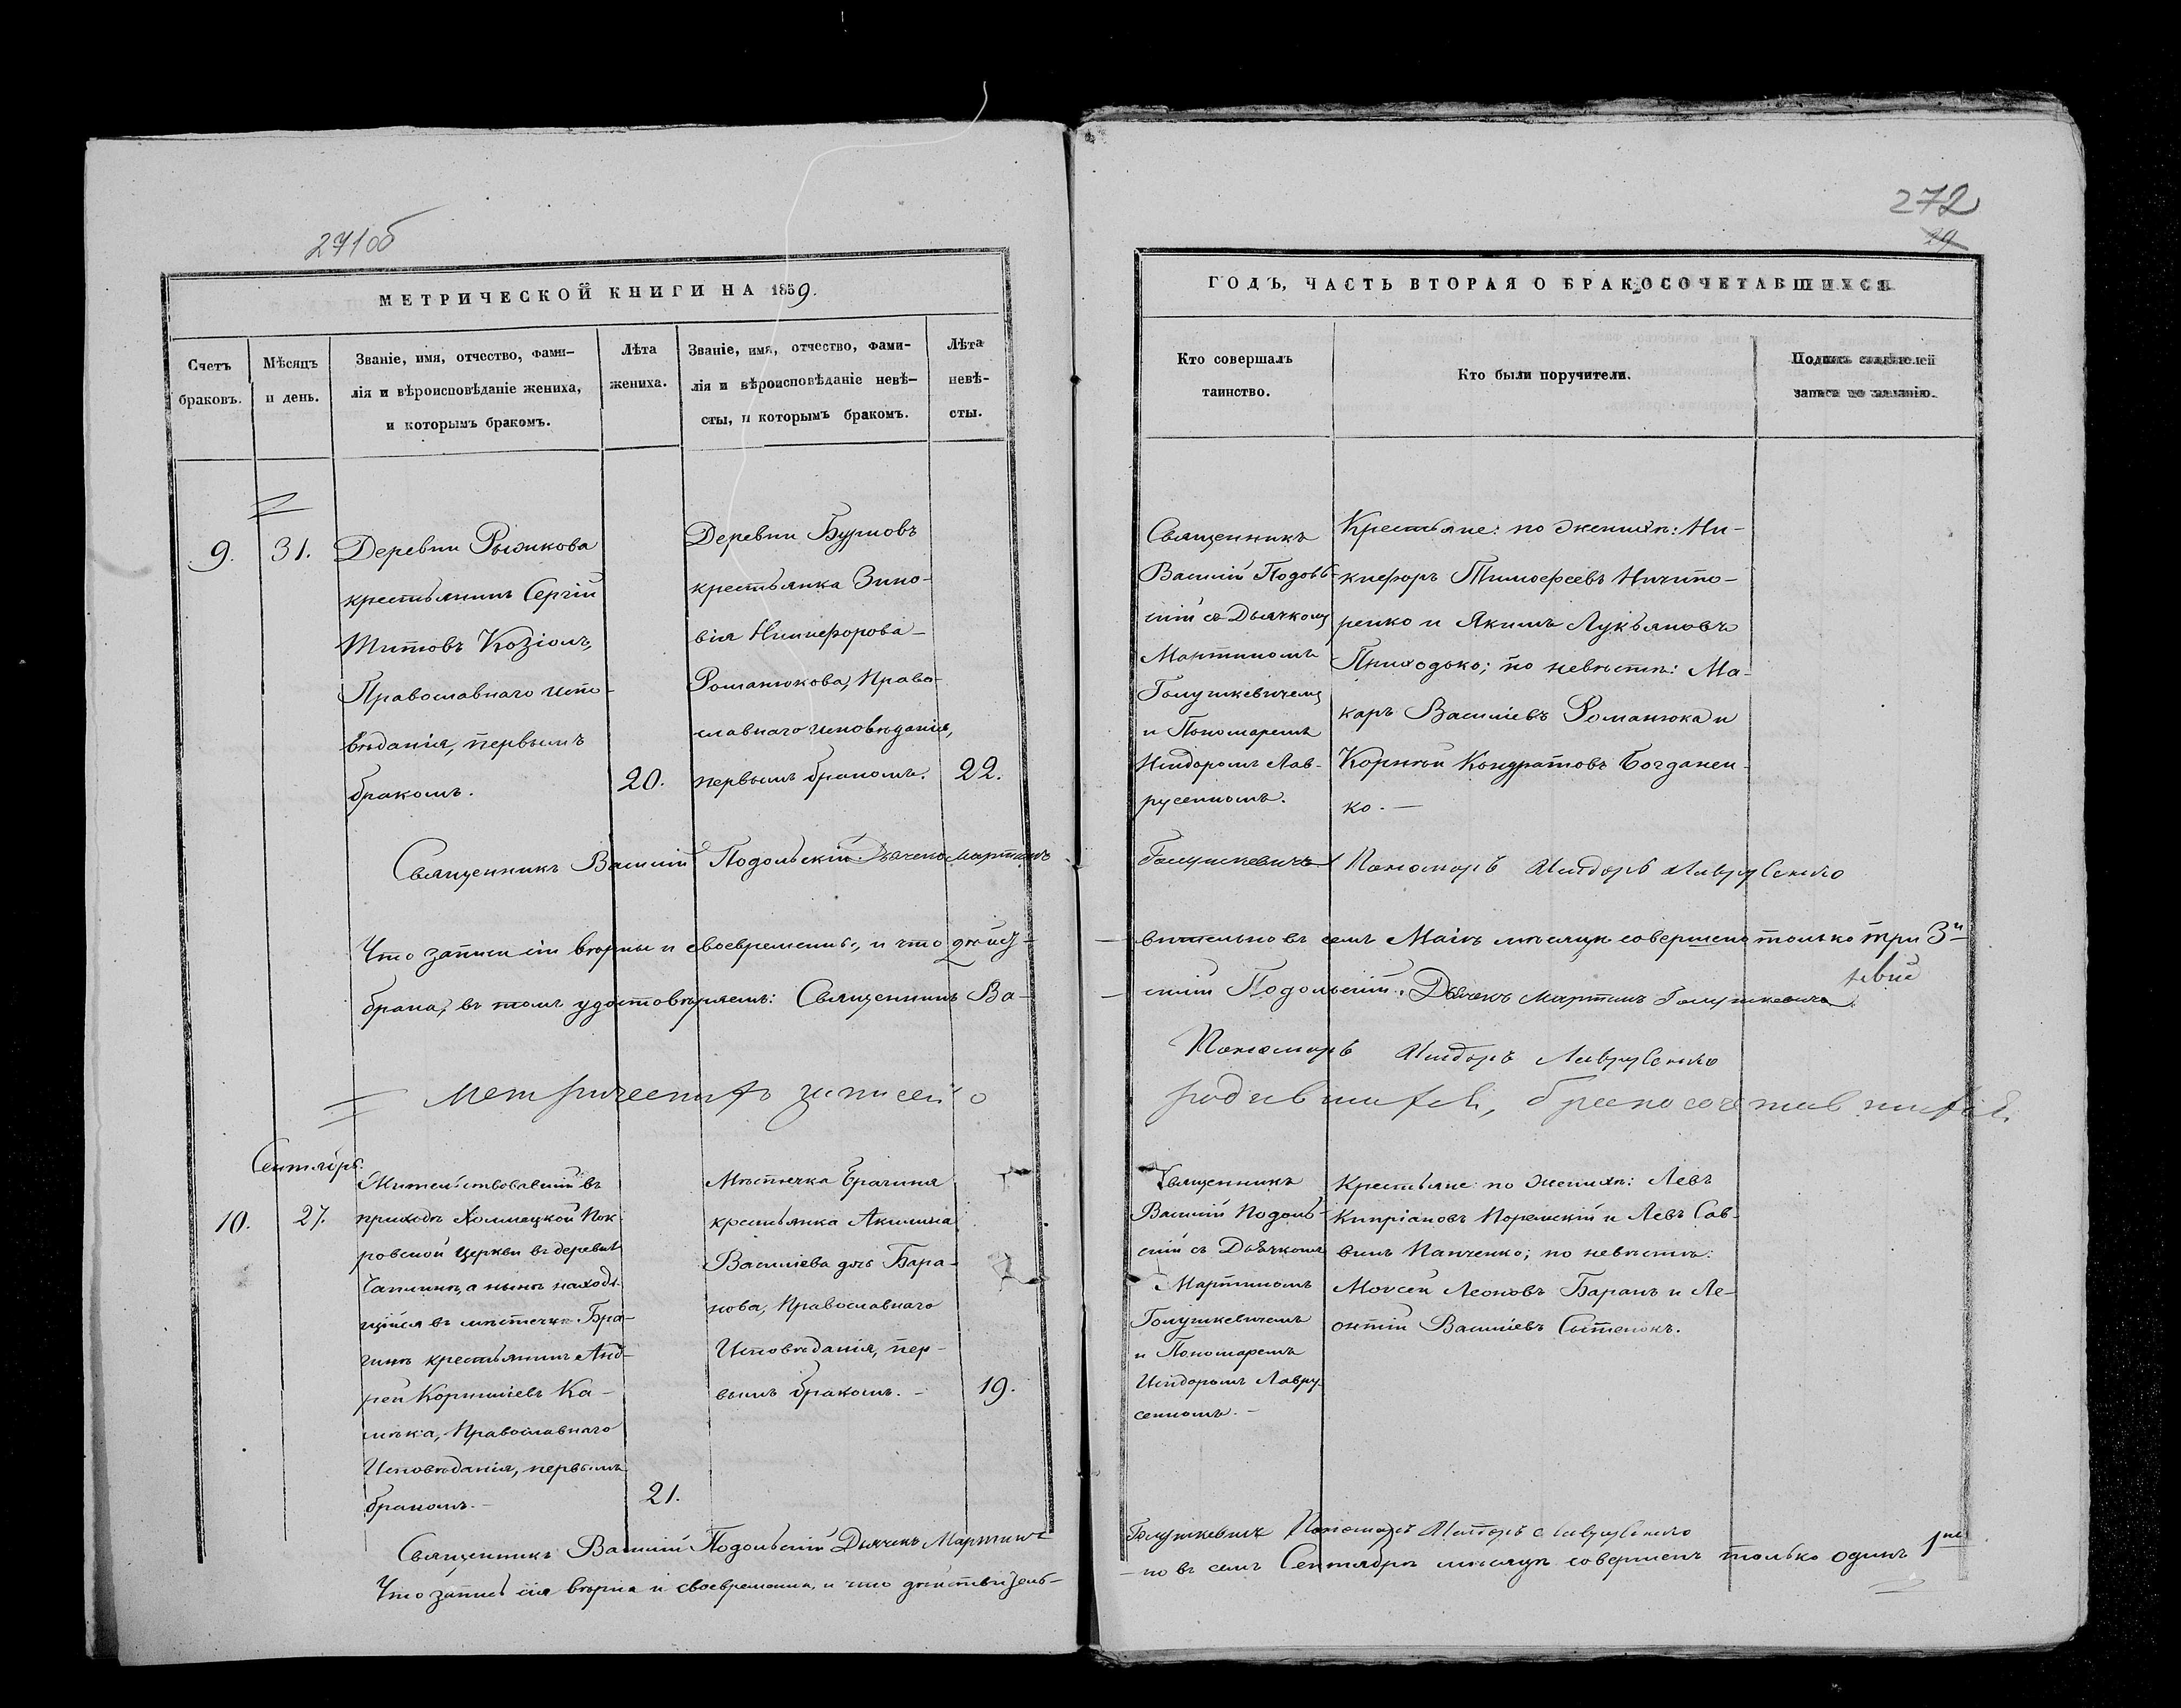 271об
МЕТРИЧЕСКОЙ КНИГИ НА 1859.
Счетъ
браковъ.
Мѣсяцъ
и день.
Званіе, имя, отчество, фами-
лія и вѣроисповѣданіе жениха,
и которымъ бракомъ.
Лѣта
жениха.
Званіе, имя, отчество, фами-
лія и вѣроисповѣданіе невѣ-
сты, и которымъ бракомъ.
Лѣта
невѣ-
сты.
9.
31.
Деревни Рыжкова
крестьянинъ Сергій
Титовъ Козіолъ,
Православнаго испо-
вѣданія, первымъ
бракомъ.
20.
Деревни Бурновъ
крестьянка Зино-
вія Никифорова
Романюкова, Право-
славнаго исповѣданія,
первымъ бракомъ.
22.
Священникъ Василій Подольскій. Дьячекъ Мартинъ
Что записи сіи вѣрны и своевременны, и что дѣйст-
брака, въ томъ удостовѣряемъ: Священникъ Ва-
= метрическихъ записей о
Сентябрь.
10.
27.
Жительствовавшій въ
приходѣ Холмецкой Пок-
ровской церкви въ деревнѣ
а нынѣ находя-
щійся въ мѣстечкѣ Бра-
гинѣ крестьянинъ Анд-
рей Корниліевъ Ка-
лѣка, Православнаго
Исповѣданія, первымъ
бракомъ.-
21.
Мѣстечка Брагина
крестьянка Акилина
Василіева дочь Бара-
нова, Православнаго
Исповѣданія, пер-
вымъ бракомъ. -
19.
Священникъ Василій Подольскій Дьячекъ Мартинъ
Что запись сія вѣрна и своевременна, и что дѣйствитель-
272
29
ГОДЪ, ЧАСТЬ ВТОРАЯ О БРАКОСОЧЕТАВШИХСЯ
Кто совершалъ
таинство.
Кто были поручители.
Подпись свидѣтелей
записи по желанію.
Священникъ
Василій Подоль-
скій съ Дьячкомъ
Мартиномъ
Голушкевичемъ
и Пономаремъ
Исидоромъ Лав-
русенкомъ.
Крестьяне: по женихѣ: Ни-
кифоръ Тимофеевъ Ничипо-
ренко и Якимъ Лукьяновъ
Приходько; по невѣстѣ: Ма-
каръ Василіевъ Романюка и
Корнѣй Кондратовъ Богданен-
ко. —
Голушкевичъ Пономарь Исидоръ Лаврусенко
вительно въ семъ Маіѣ мѣсяцѣ совершено только три 3и
силій Подольскій. Дьячекъ Мартинъ Голушкевичъ.
Пономарь Исидоръ Лаврусенко
родившихся, бракосочетавшихся
Священникъ
Василій Подоль-
скій съ Дьячкомъ
Мартиномъ
Голушкевичемъ
и Пономаремъ
Исидоромъ Лавру-
сенкомъ. -
Крестьяне: по женихѣ: Левъ
Кипріановъ Поремскій и Левъ Сав-
винъ Панченко; по невѣстѣ:
Моисей Леоновъ Баранъ и Ле-
онтій Василіевъ Сытенокъ.
Голушкевичъ Пономарь Исидоръ Лаврусенко
- но въ семъ Сентябрѣ мѣсяцѣ совершенъ только одинъ 1нъ